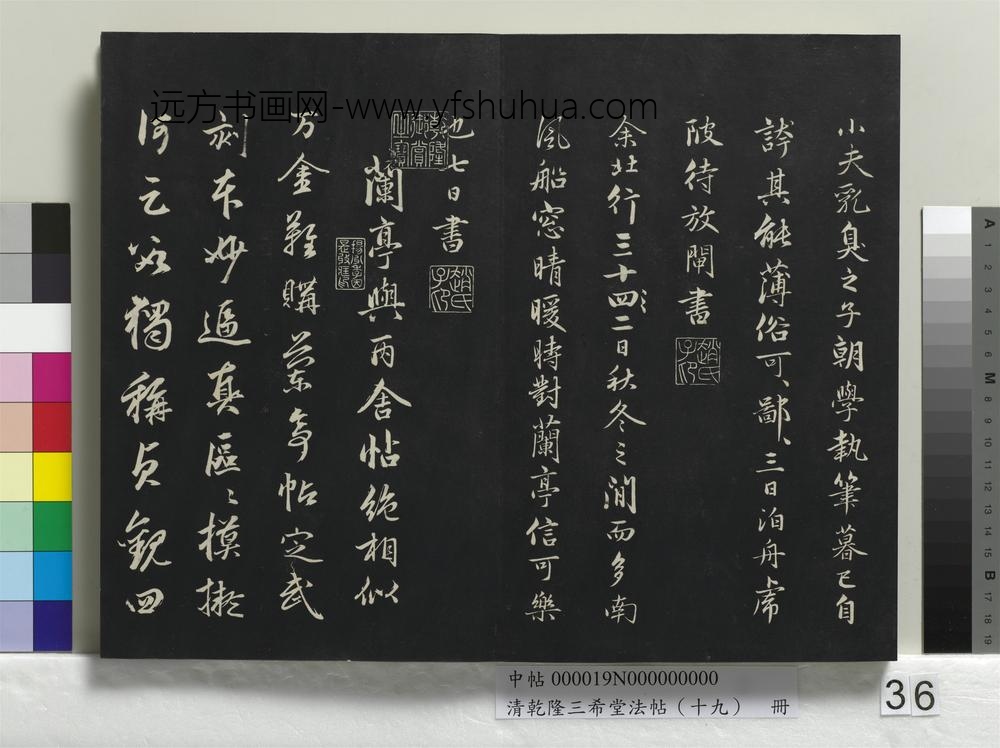 远方书画网-www.yfshuhua.com
小夫乳臭之子朝學執筆暮已自
誇其能薄俗可、鄙、三日泊舟虎
陂待放閘書
趙氏子印
余北行三十四二日秋冬之間而多南
風船窓晴暖時對蘭亭信可樂
也七日書
趙氏子印
乾隆御賞之寶
蘭亭與丙舍帖絕相似
万金難購蘭亭帖定武
刻本妙逼真區〻模擬
何云獨稱貞觀四
中帖 000019N000000000
清乾隆三希堂法帖（十九） 冊
36
A 1 2 3 4 5 6 M 8 9 10 11 12 13 14 15 B 17 18 19